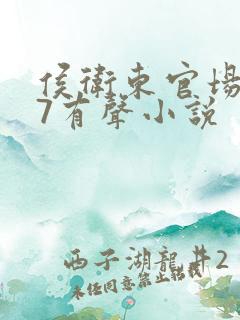 侯衛東官場
7有聲小說
西子湖龍井2
未任同意禁止轉載